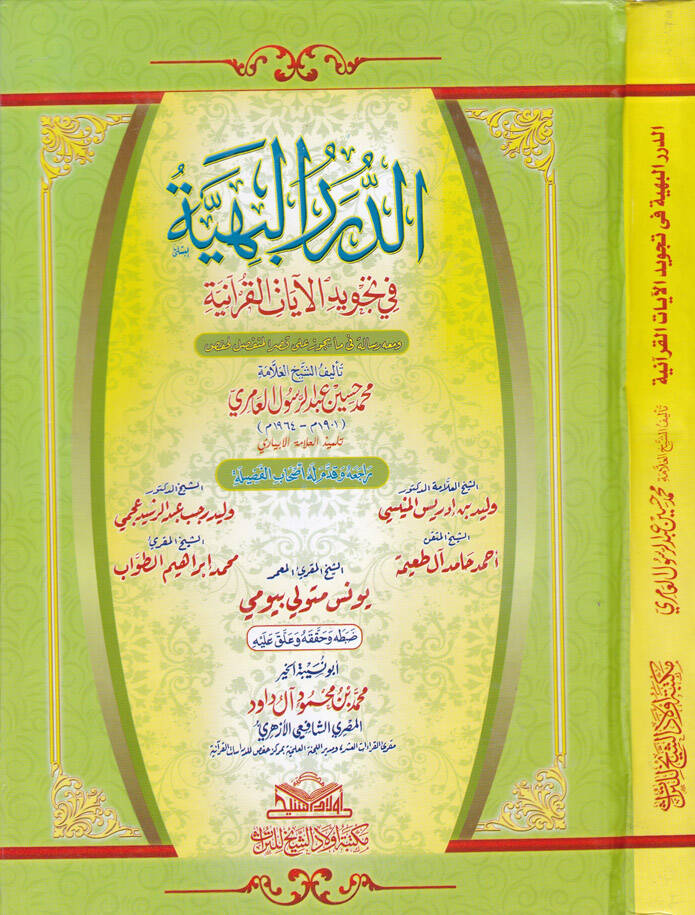 الدُّرَرُ البَهِيَّةُ
في تجويد الآيات القرآنية
ومعه رسالة في ما يجوز على قصر المنفصل لحفص
تأليف الشيخ العلامة
محمد حسين عبد الرسول العامري
(١٩٠١م - ١٩٦٤م)
تلميذ العلامة الأبياري
راجعه وقدم له أصحاب الفضيلة
الشيخ العلامة الدكتور
وليد بن إدريس المنيسي
الشيخ الدكتور
وليد رجب عبد الرشيد عجمي
الشيخ المتقن
أحمد حامد آل طعيمة
الشيخ المقرئ
محمد إبراهيم الطواب
الشيخ المقرئ المعمر
يونس متولي بيومي
ضبطه وحققه وعلق عليه
أبو نسيبة الخير
محمد بن محمود آل داود
المصري الشافعي الأزهري
مقرئ القراءات العشر ومدير اللجنة العلمية بمركز حفص للدراسات القرآنية
أولاد الشيخ
مكتبة أولاد الشيخ للتراث
الدرر البهية فى تجويد الآيات القرآنية
تأليف الشيخ العلامة
محمد حسين عبد الرسول العامري
مكتبة أولاد الشيخ للتراث